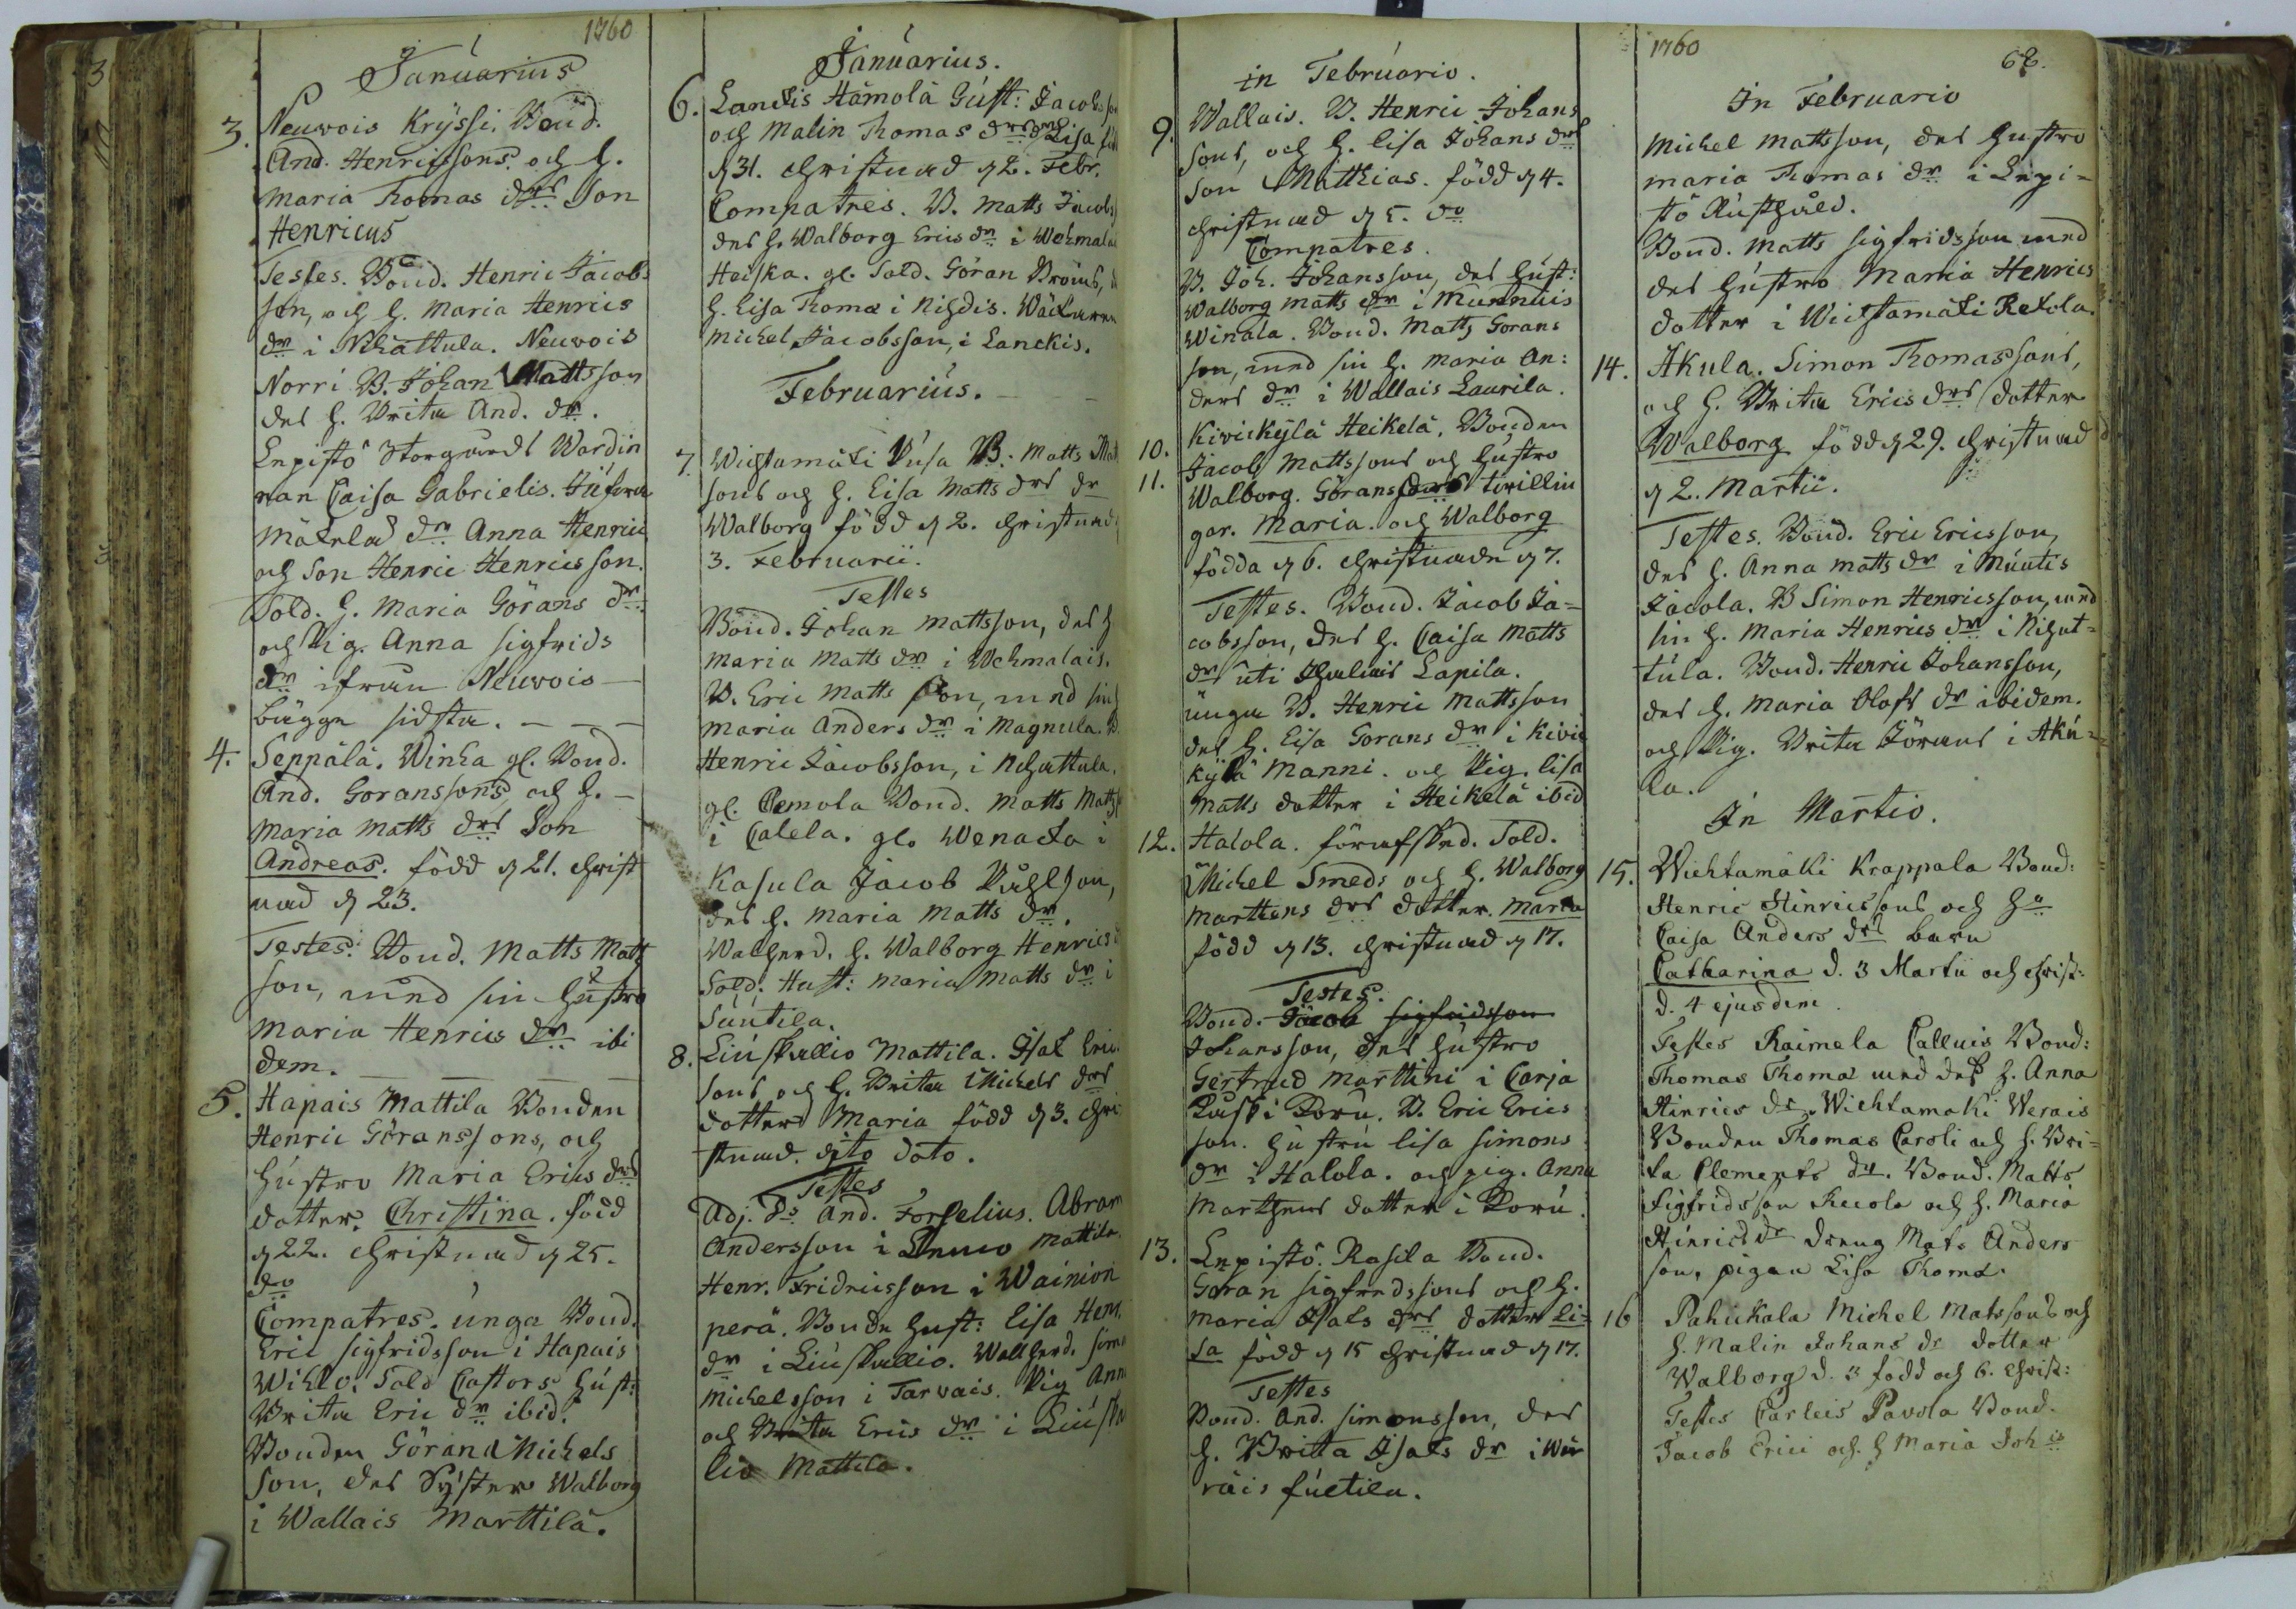 1760
Januarius
3. Neuvois Kryssi. Bond.
And. Henricssons och h.
Maria Thomas drs Son
Henricus
Testes. Bond. Henric Jacobs
son, och h. Maria Henrics
dr i Nihattula. Neuvois
Norri B. Johan Mattsson
des h. Brita And. dr.
Lepistö Storgårds Wärdin
nan Caisa Gabrielis. Jüfwer
Mäkelas dr Anna Henrics
och Son Henric Henricsson.
Sold. h. Maria Görans dr
och Pig. Anna Sigfrids
dr ifrån Neuvois
bägge sidsta.
4. Seppälä. Winha gl. Bond.
And. Goranssons och h.
Maria Matts drs Son
Andreas. född d 21. Christ
nad d 23.
Testes. Bond. Matts Matts
son, med sin Hustro
Maria Henrics dr ibi
dem.
5. Hapais Mattila Bonden
Henric Göranssons, och
Hustro Maria Erics drs
dotter. Christina. född
d 22. Christnad d 25.
do
Compatres. unga Bond.
Eric Sigfridsson i Hapais
Wihlo. Sold Castors Hust:
Brita Eric dr ibid.
Bonden Göran Michels
son, des Syster Walborg
i Wallais Marttila.
Januarius.
6. Lanckis Hämölä Gust: Jacobsson
och Malin Thomas drs dr Lisa född
d 31. Christnad d 2. Febr.
Compatres. B. Matts Jacobs
des h. Walborg Erics dr i Wehmalais
Heicka. gl. Sold. Göran Broms,
h. Lisa Thomæ i Nihdis. Wäfwaren
Michel Jacobsson, i Lanckis.
Februarius.
7. Wichtamäki Pusa B. Matts Matts
sons och h. Lisa Matts drs dr
Walborg född d 2. Christnad
3. Februarii.
Testes
Bond. Johan Mattsson, des h
Maria Matts dr i Wehmalais.
B. Eric Matts son, med sin h
Maria Anders dr i Magnula. B.
Henric Jacobsson, i Nihattula.
gl. Pemola Bond. Matts Matts
i Calela. gl. Wenacka i
Kasula Jacob Påhlson,
des h. Maria Matts dr.
Walherd. h. Walborg Henrics
Sold: Hust: Maria Matts dr i
Suntila.
8. Liuskallio Mattila. Isak Erics
sons och h. Brita Michels drs
dotter Maria född d 3. Chri
stnad. dito dato.
Testes
Adj. Ds And. Forselius. Abram
Andersson i Lemo Mattila.
Henr. Fridricsson i Wainion
perä. Bonde Hust: Lisa Henr.
dr i Liuskallio. Wallherd. Sim
Michelsson i Tarvais. Pig Anna
och Brita Erics dr i Liuska
lio Mattila.
in Februario.
9. Wallais. B. Henric Johans
sons, och h. Lisa Johans drs
Son Matthias. född d 4.
Christnad d 5. do
Compatres.
B. Joh. Johansson, des Hust:
Walborg Matts dr i Munnuis
Winala. Bond. Matts Gorans
son, med sin h. Maria An:
ders dr i Wallais Laurila.
10. Kivickylä Heikelä. Bonden
11. Jacob Mattssons och Hustro
Walborg. Görans drs twillin
gar. Maria. och Walborg
födda d 6. Christnade d 7.
Testes. Bond. Jacob Ja=
cobsson, des h. Caisa Matts
dr uti Lapila.
unga B. Henric Mattsson
des h. Lisa Gorans dr i Kivic
kylä Manni. och Pig. Lisa
Matts dotter i Heikelä ibid
12. Halola. förafsked. Sold.
Michel Smeds och h. Walborg
Marttens drs dotter. Maria
född d 13. Christnad d 17.
Testes.
Bond. Jacob Sigfridsson
Johansson, des Hustro
Gertrud Marttini i Carja
Kuski Poru. B. Eric Erics
son. Hustru Lisa Simons
dr i Halola. och pig. Anna
Marthens dotter i Poru.
13. Lepistö. Rasila Bond.
Goran Sigfredssons och h.
Maria Isaks drs dotter Li=
sa född d 15 Christnad d 17.
Testes
Bond. And. Simonsson, des
h. Britta Isaks dr i Wir
räis .
1760
68.
In Februario
Michel Mattsson, des Hustro
Maria Thomas dr i Lepi=
stö Rusthåld.
Bond. Matts Sigfridsson med
des Hustro Maria Henrics
dotter i Wichtamäki Rekola.
14. Akula. Simon Thomassons,
och h. Brita Erics drs dotter
Walborg född d 29. Christnad
d 2. Martii.
Testes. Bond. Eric Ericsson,
des h. Anna Matts dr i Muntis
Jacola. B Simon Henricsson, med
sin h. Maria Henrics dr i Nihat=
tula. Bond. Henric Johansson,
des h. Maria Olofs dr ibidem.
och Pig. Brita Jörans i Aku=
la.
In Martio.
15. Wichtamäki Krappala Bond:
Henric Hinricssons och Ho
Caisa Anders drs barn
Catharina d. 3 Martii och christ:
d. 4 ejusdem.
Testes Raimela Calluis Bond:
Thomas Thomæ med des h. Anna
Hinrics dr. Wichtamäki Werais
Bonden Thomas Caroli och h. Bri=
ta Clements dr. Bond. Matts
Sigfridsson Recola och h. Maria
Hinrics dr Dreng Mats Anders
son, pigan Lisa Thomæ.
16 Pahickala Michel Matssons och
h. Malin Johans dr dotter
Walborg d. 3 född och 6. christ:
Testes Carleis Pavola Bond.
Jacob Erici och h Maria Johis